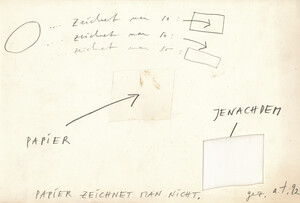 ... zeichnet man so:
... zeichnet man so:
zeichnet man so:
PAPIER
JENACHDEM
PAPIER ZEICHNET MAN NICHT.
gez. a.t.